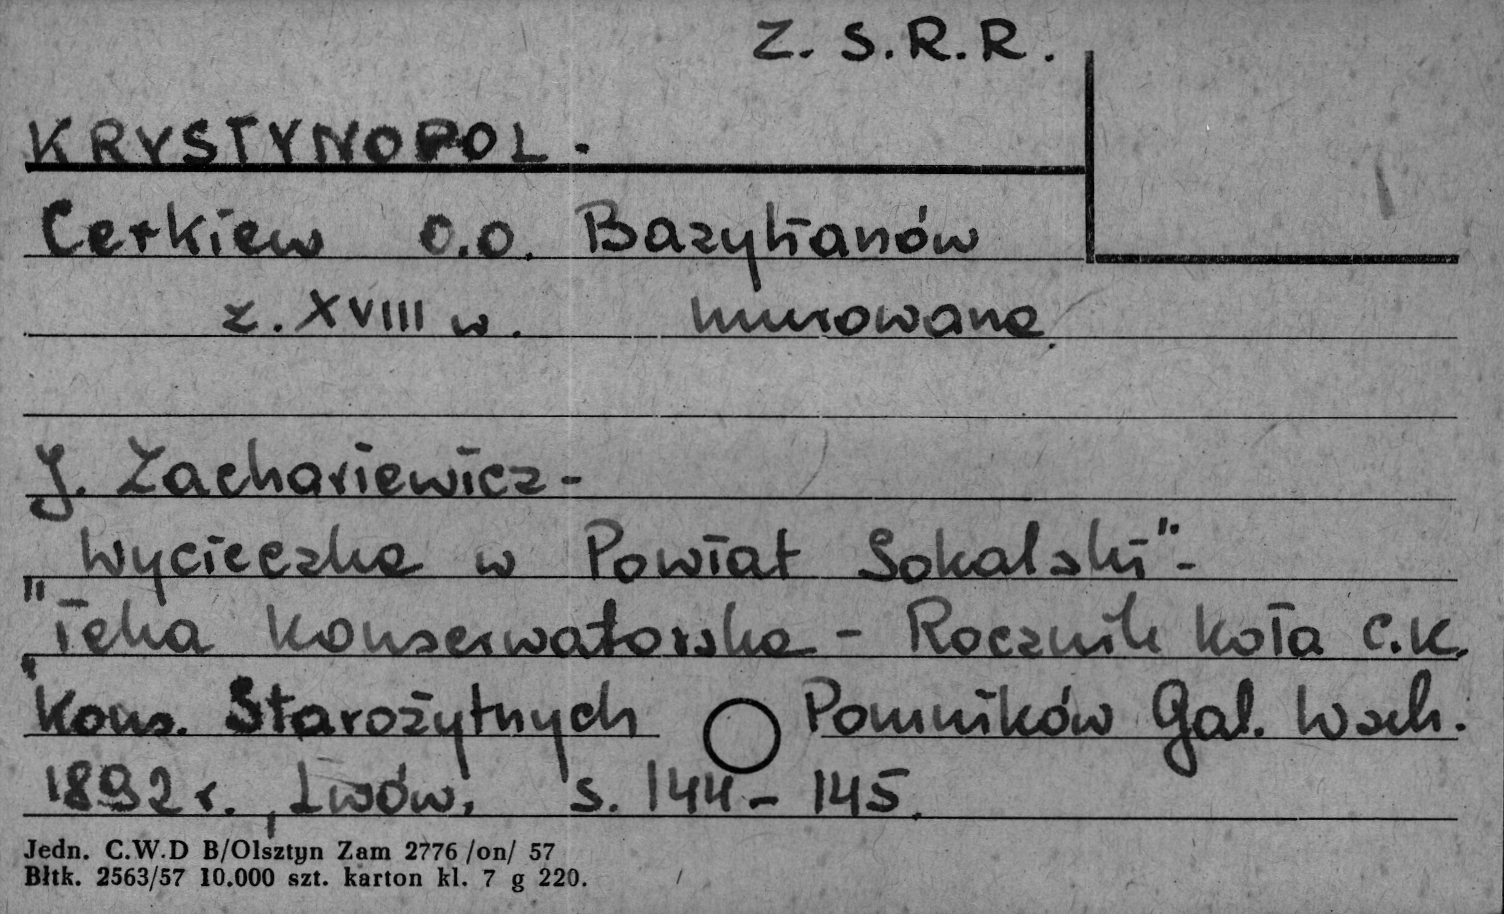 Z. S. R. R.
KRYSTYNOPOL.
Cerkiew O.O. Bazylianów
z. XVIII w. murowana.
J. Zachariewicz -
"Wycieczka w Powiat Sokalski" -
"Teka Konserwatorska - Rocznik Koła C.K.
Kons. Starożytnych Pomników Gal. Wsch.
1892 r., Lwów, s. 144 - 145.
Jedn. C.W.D B/Olsztyn Zam 2776 /on/ 57
Błtk. 2563/57 10.000 szt. karton kl. 7 g 220.